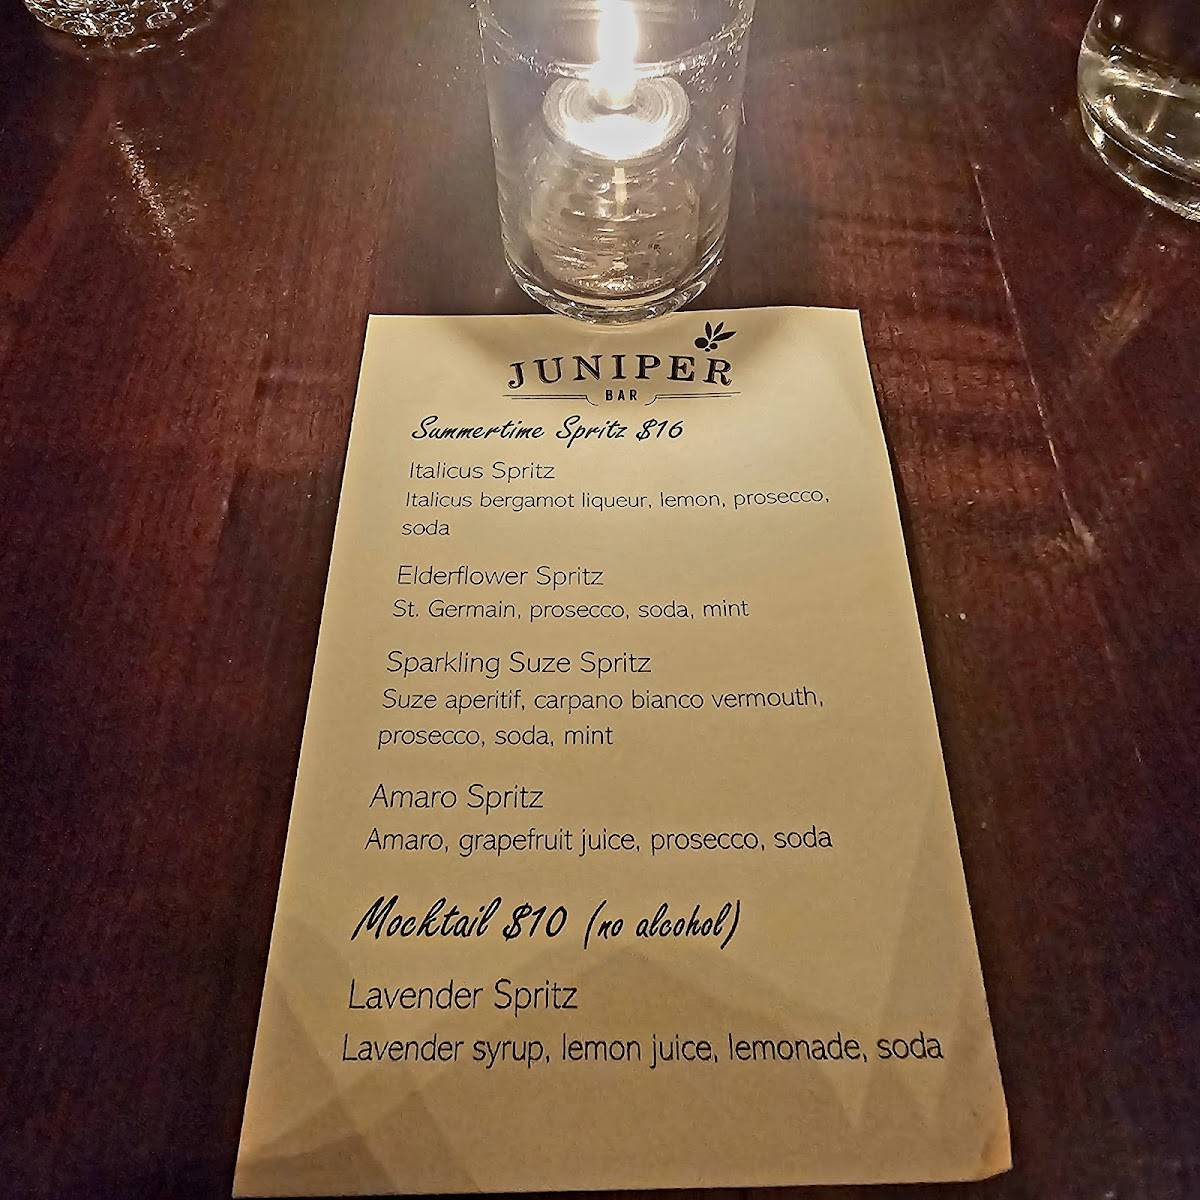 JUNIPER
BAR
Summertime Spritz $16
Italicus Spritz
Italicus bergamot liqueur, lemon, prosecco,
soda
Elderflower Spritz
St. Germain, prosecco, soda, mint
Sparkling Suze Spritz
Suze aperitif, carpano bianco vermouth,
prosecco, soda, mint
Amaro Spritz
Amaro, grapefruit juice, prosecco, soda
Mocktail $10 (no alcohol)
Lavender Spritz
Lavender syrup, lemon juice, lemonade, soda